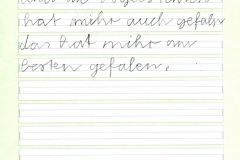 hat mihr auch gefaln
das hat mihr am
besten gefalen.